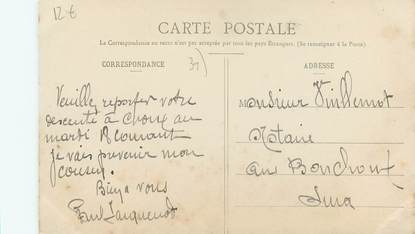 12 €
CARTE POSTALE
La Correspondance au recto n'est pas acceptée par tous les pays Étrangers. (Se renseigner à la Poste).
CORRESPONDANCE
39
ADRESSE
Veuillez reporter votre
descente à Choux au
mardi 18 courant
je vais prévenir mon
cousin.
Bien à vous
Paul Jacquenod
Monsieur Vuillermot
Notaire
aux Bouchoux
Jura